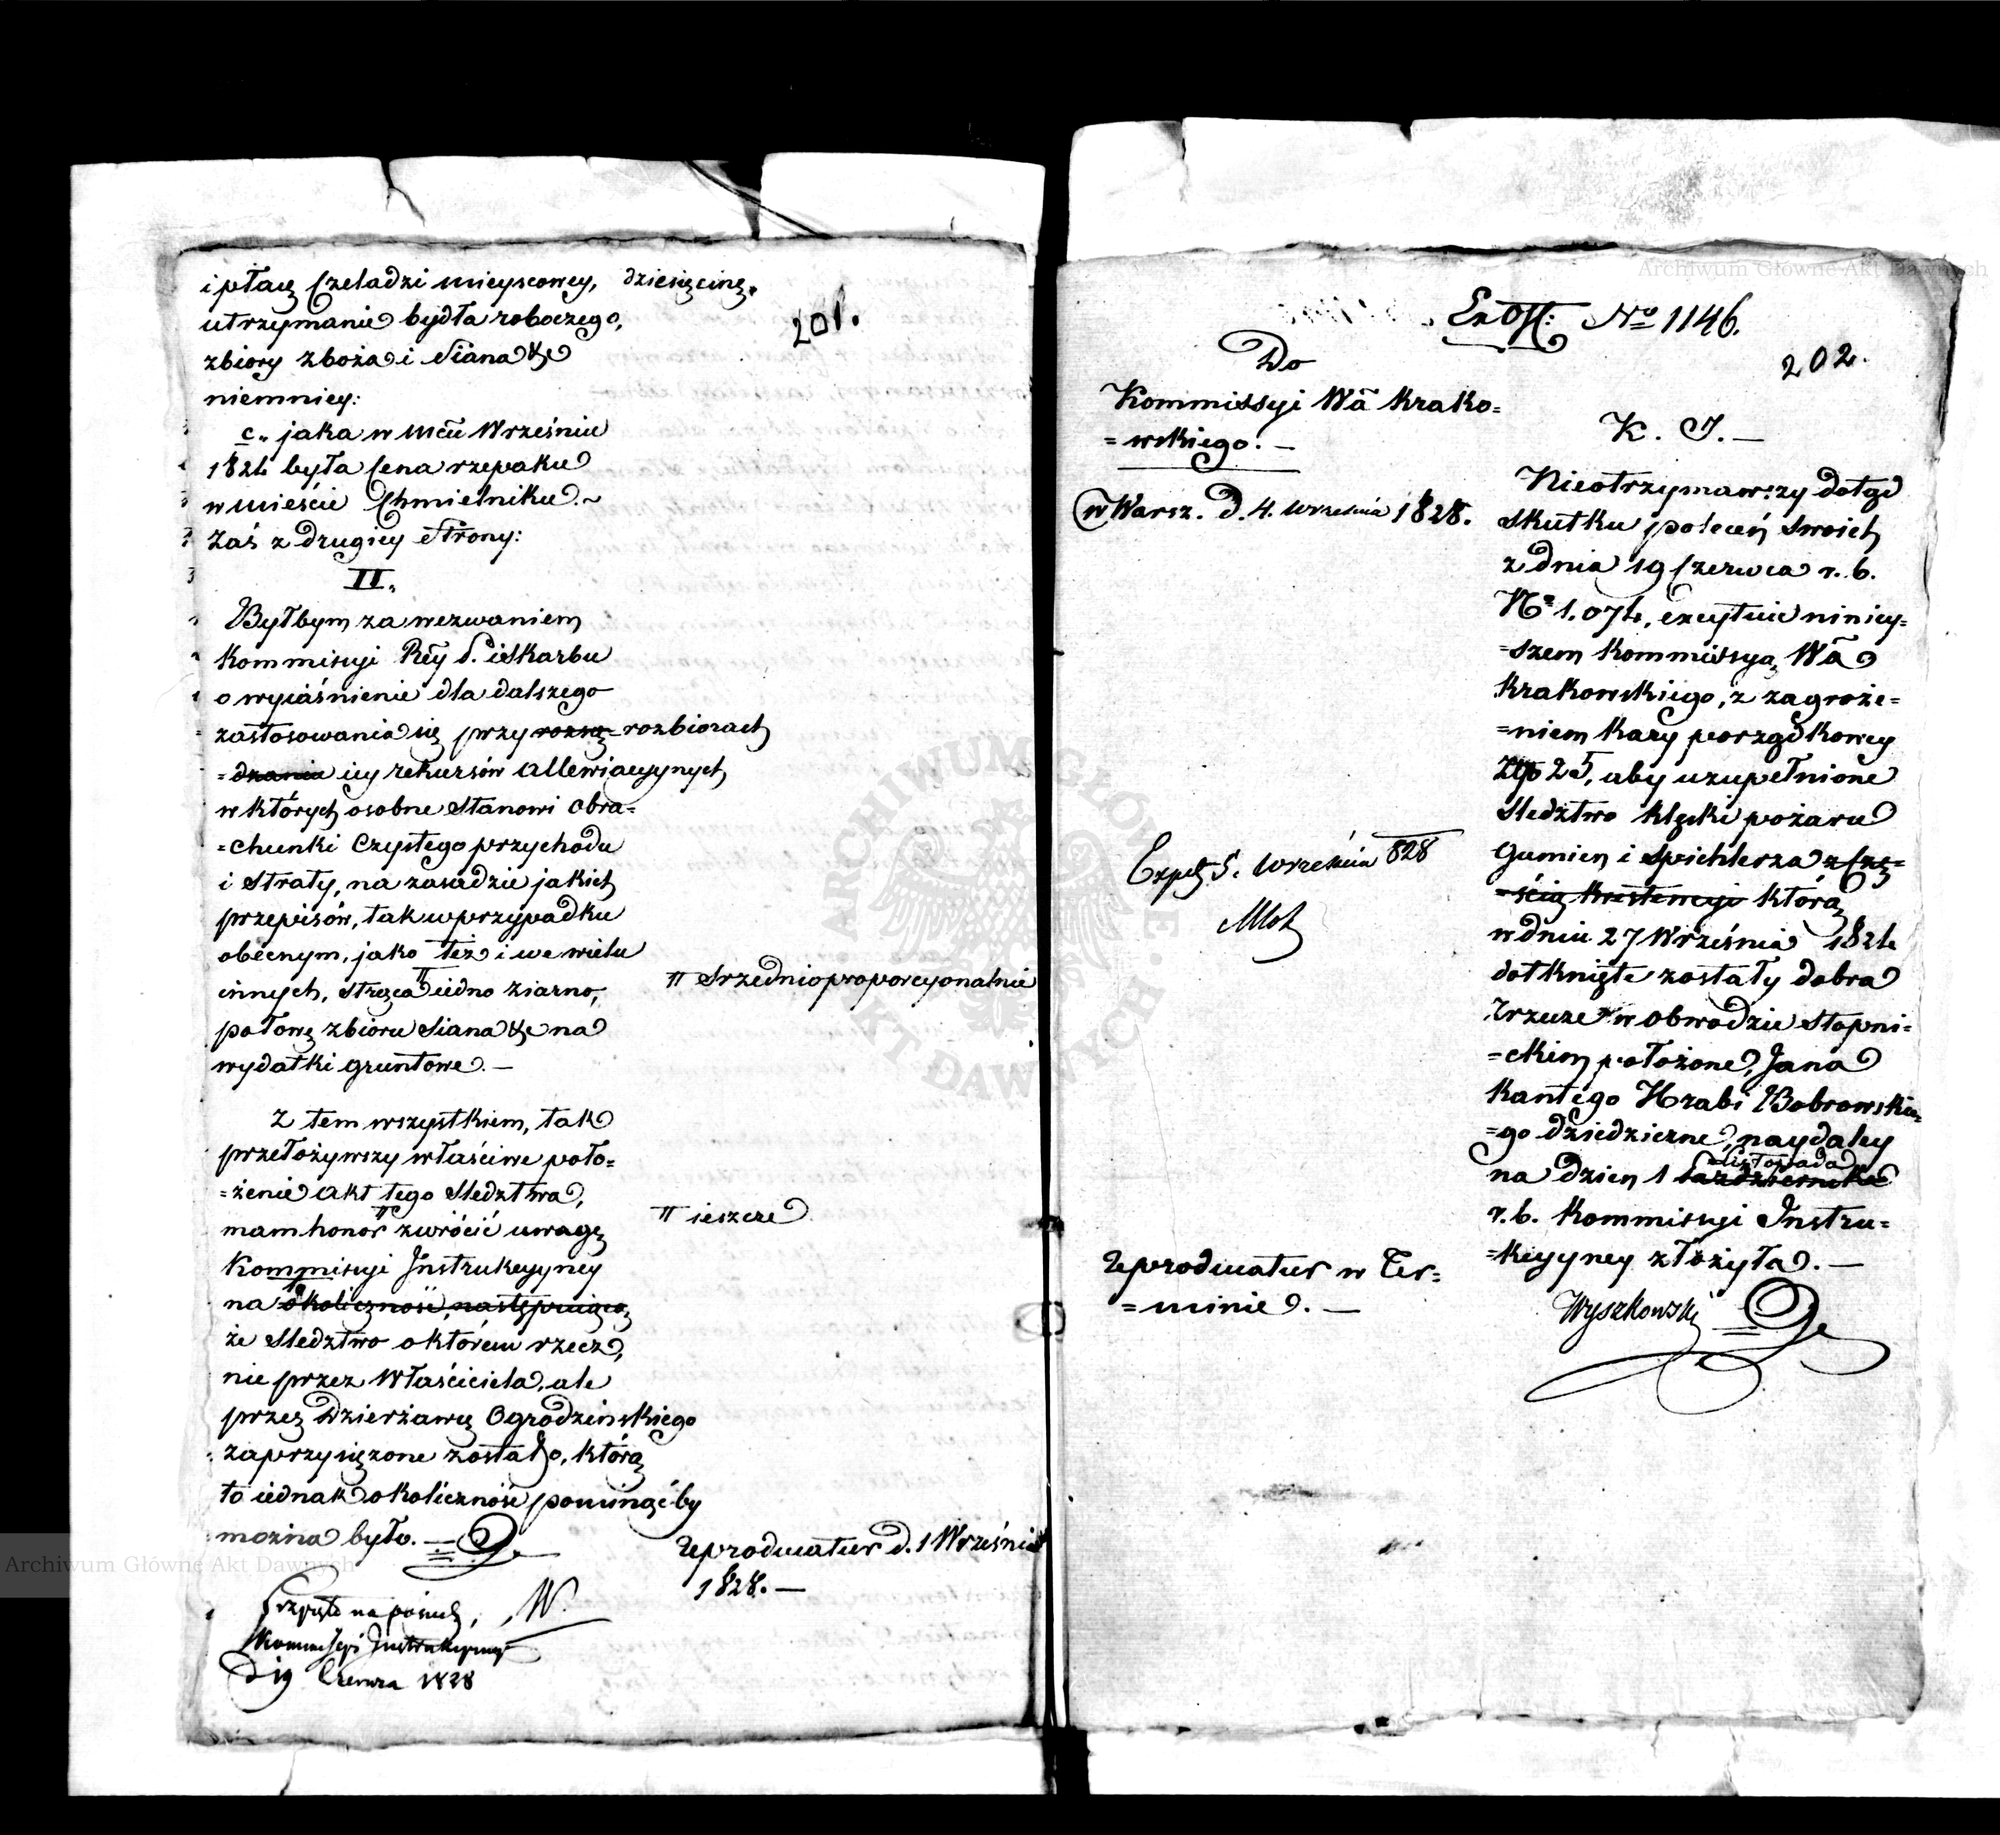 201.
i płacę Czeladzi mieyscowey, dziesięcinę,
utrzymanie bydła roboczego,
zbiory zboża i Siana &c
niemniey:
c., jaka w mcu Wrześniu
1824 była Cena rzepaku
w mieście Chmielniku. ~
Zaś z drugiey Strony:
II.
Byłbym za wezwaniem
Kommissyi Rz. P. i Skarbu
o wyiaśnienie dla dalszego
zastosowania się przy rozbiorach
iey rekursów allewiacyynych
w których osobne Stanowi obra=
=chunki Czystego przychodu
i Straty, na zasadzie jakich
przepisów, tak w przypadku
obecnym, jako też i we wielu
innych, strąca π iedno ziarno,
π Srzednioproporcyonalnie
połowę zbioru Siana &c na
wydatki gruntowe. —
Z tem wszystkiem, tak
przełożywszy właściwe poło=
=żenie akt tego Sledztwa,
mam honor π zwrócić uwagę
π ieszcze
Kommissyi Instrukcyyney
na to okoliczność następuiącą,
że Sledztwo o którem rzecz,
nie przez Właściciela, ale
przez Dzierżawcę Ogrodzińskiego
zaprzysiężone zostało, którą
to iednak okoliczność pominąć by
można było. —
Reproducatur d. 1 Września
1828. —
Przyięto na posiedz. W.
Kommissyi Instrukcyiney
d 19 Czerwca 1828
Ex Off: No 1146.
202.
Do
Kommissyi Wa Krako=
=wskiego. —
w Warsz. d. 4. Września 1828.
K. I. —
Nieotrzymawszy dotąd
skutku poleceń swoich
z dnia 19 Czerwca r. b.
No 1.074, excytuie niniey=
=szem Kommissyą Wa
Krakowskiego, z zagroże=
=niem kary porządkowey
Złp 25, aby uzupełnione
Sledztwo klęski pożaru
Gumien i Spichlerza z Czę=
=ścią Krestencyi którą
w dniu 27 Września 1824
dotknięte zostały dobra
Zrzuze w Obwodzie Stopni=
=ckim położone, Jana
Kantego Hrabi Bobrowskie=
=go dziedziczne, naydaley
=Listopada
na dzień 1 Października
r. b. Kommissyi Instru=
=kcyyney złożyła. —
Wyszkowski
Exped. 5. Września 828
Reproducatur w Ter=
=minie. —
Archiwum Główne Akt Dawnych
Archiwum Główne Akt Dawnych
ARCHIWUM GŁÓWNE AKT DAWNYCH